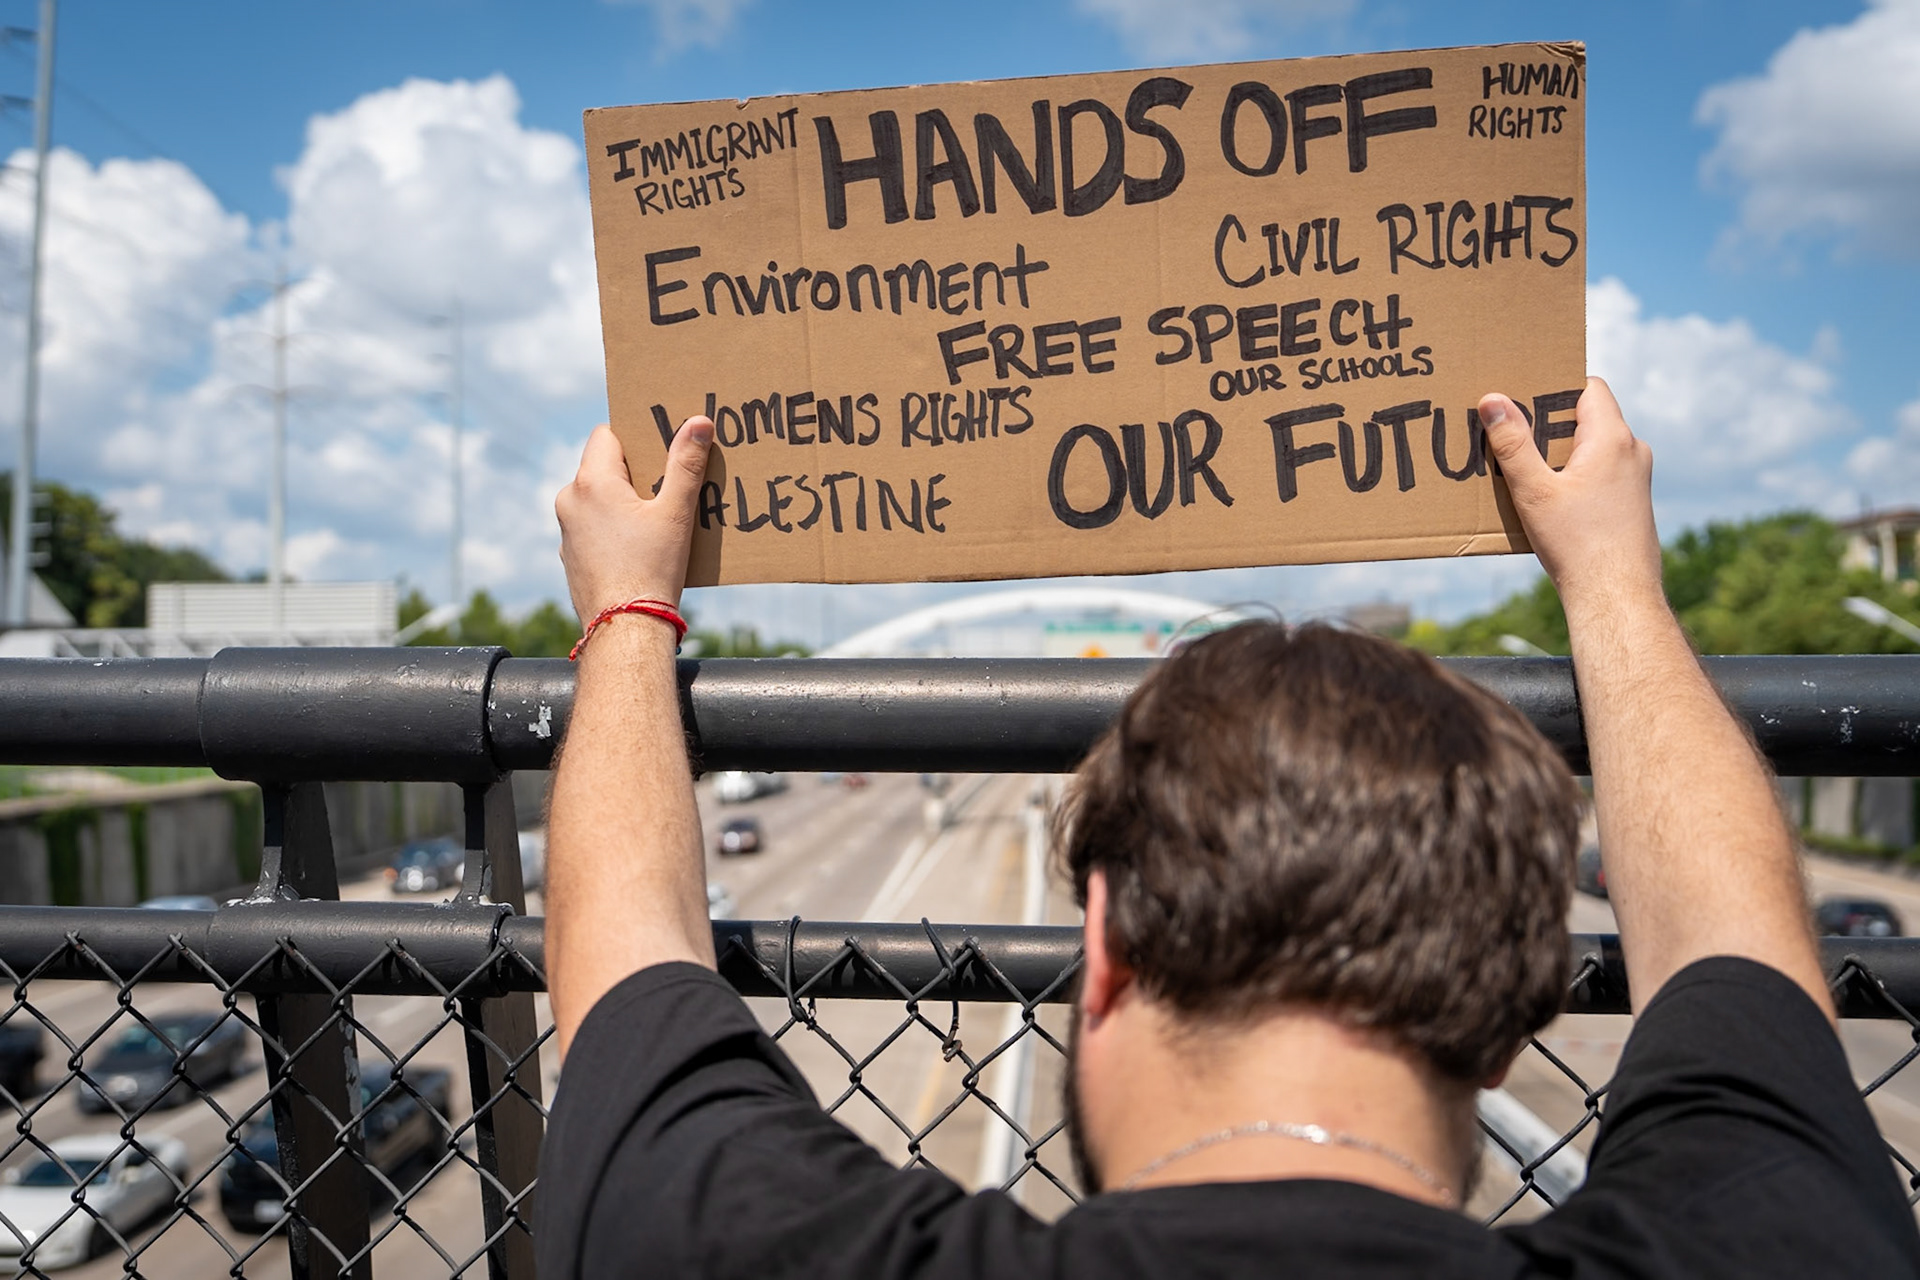 IMMIGRANT
RIGHTS
HANDS OFF
HUMAN
RIGHTS
Environment
CIVIL RIGHTS
FREE SPEECH
OUR SCHOOLS
WOMENS RIGHTS
PALESTINE
OUR FUTURE